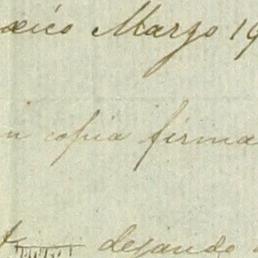 xico Marzo 19
n copia firma
dejando